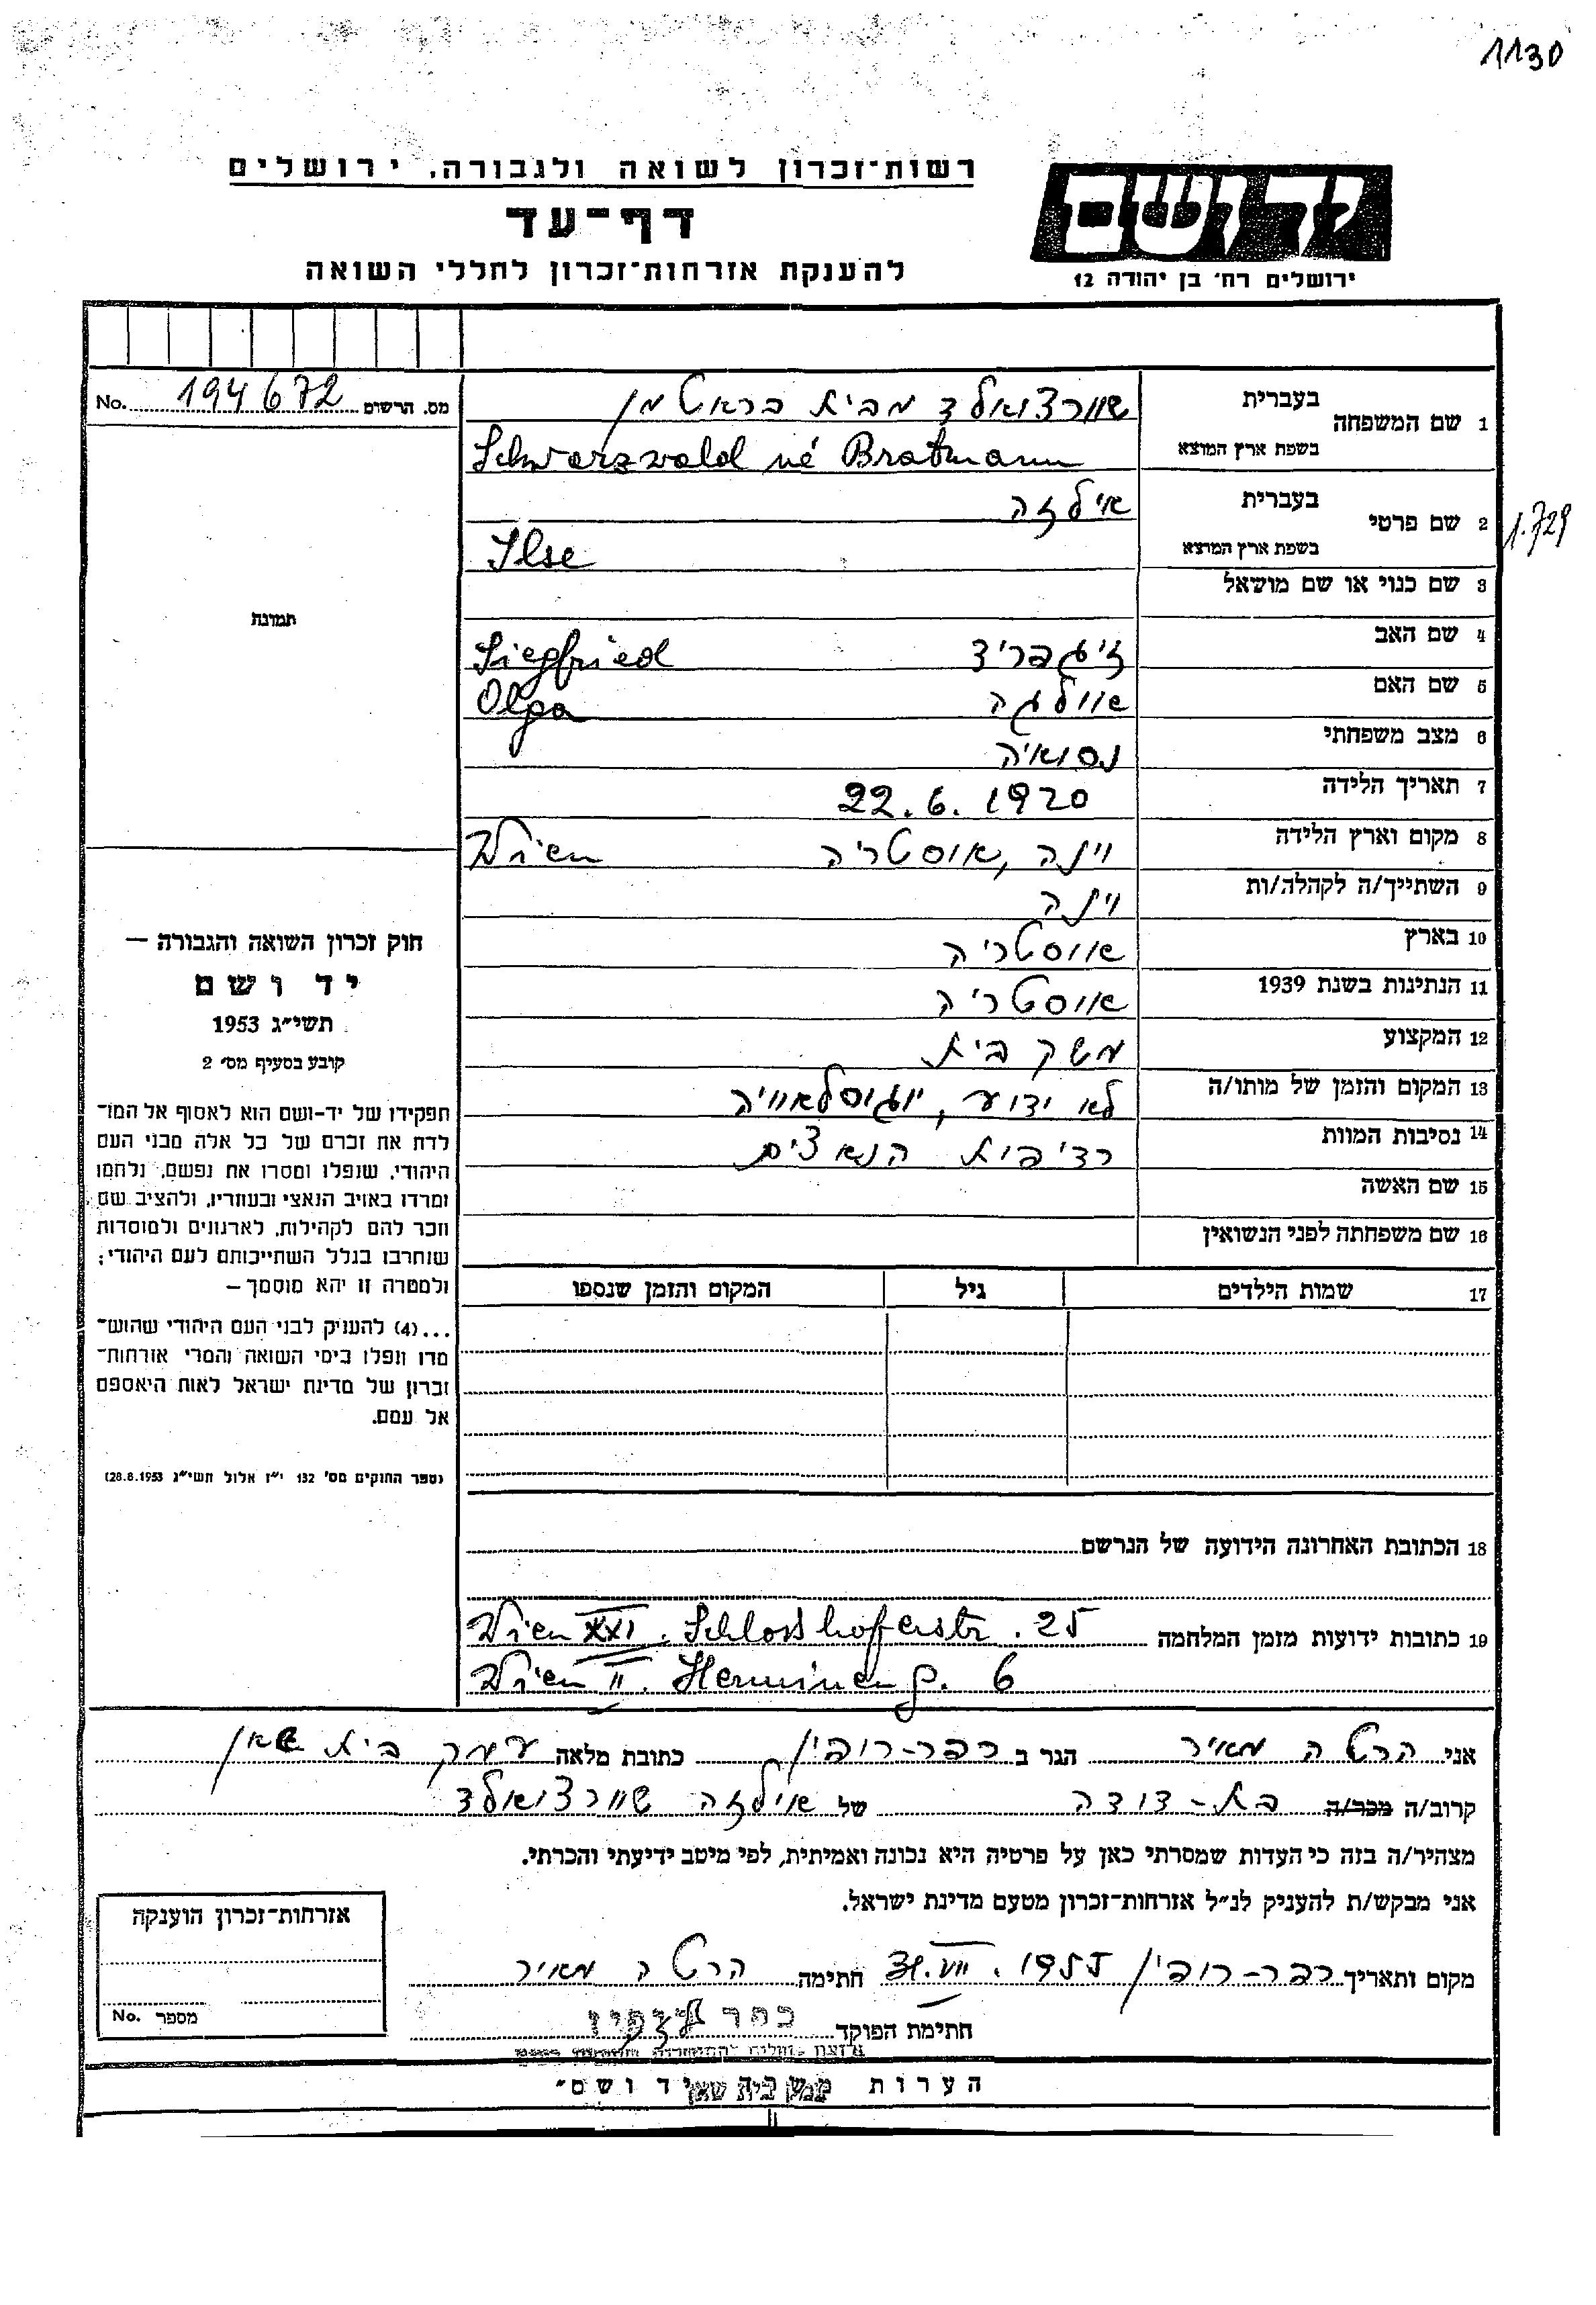 1130
רשות־זכרון לשואה ולגבורה, ירושלים
ידושם
דף־עד
ירושלים רח' בן יהודה 12
להענקת אזרחות־זכרון לחללי השואה
מס. הרשום 194672 No.
1 שם המשפחה בעברית שוורצוואלד מבית בראטמן
בשפת ארץ המוצא Schwarzwald né Bratmann
2 שם פרטי בעברית אילזה
בשפת ארץ המוצא Ilse
1.729
3 שם כנוי או שם מושאל
4 שם האב זיגפריד Siegfried
5 שם האם אוולגה Olga
6 מצב משפחתי נסואיה
7 תאריך הלידה 22.6.1920
8 מקום וארץ הלידה וינה, אוסטריה Wien
9 השתייך/ה לקהלה/ות וינה
10 בארץ אוסטריה
11 הנתינות בשנת 1939 אוסטריה
12 המקצוע משק בית
13 המקום והזמן של מותו/ה לא ידוע, יוגוסלאוויה
14 נסיבות המוות רדיפות הנאצים
15 שם האשה
16 שם משפחתה לפני הנשואין
17 שמות הילדים גיל המקום והזמן שנספו
תמונה
חוק זכרון השואה והגבורה —
יד ושם
תשי״ג 1953
קובע בסעיף מס' 2
תפקידו של יד-ושם הוא לאסוף אל המו־
לדת את זכרם של כל אלה מבני העם
היהודי, שנפלו ומסרו את נפשם, נלחמו
ומרדו באויב הנאצי ובעוזריו, ולהציב שם
וזכר להם לקהילות, לארגונים ולמוסדות
שנחרבו בגלל השתייכותם לעם היהודי;
ולמטרה זו יהא מוסמך —
...(4) להעניק לבני העם היהודי שהוש־
מדו ונפלו בימי השואה והמרי אזרחות־
זכרון של מדינת ישראל לאות היאספם
אל עמם.
(ספר החוקים מס' 132 י״ז אלול תשי״ג 28.8.1953)
18 הכתובת האחרונה הידועה של הנרשם
19 כתובות ידועות מזמן המלחמה Wien XXI. Schlosshoferstr. 25
Wien II. Hermineng. 6
אני הרטה מאיר הגר ב כפר-רופין כתובת מלאה עמק בית שאן
קרוב/ה מכר/ה בת-דודה של אילזה שוורצוואלד
מצהיר/ה בזה כי העדות שמסרתי כאן על פרטיה היא נכונה ואמיתית, לפי מיטב ידיעתי והכרתי.
אני מבקש/ת להעניק לנ״ל אזרחות־זכרון מטעם מדינת ישראל.
מקום ותאריך כפר-רופין 31.VII.1955 חתימה הרטה מאיר
חתימת הפוקד כפר רופין
אזרחות־זכרון הוענקה
מספר No.
הערות ושם״
עמק בית שאן